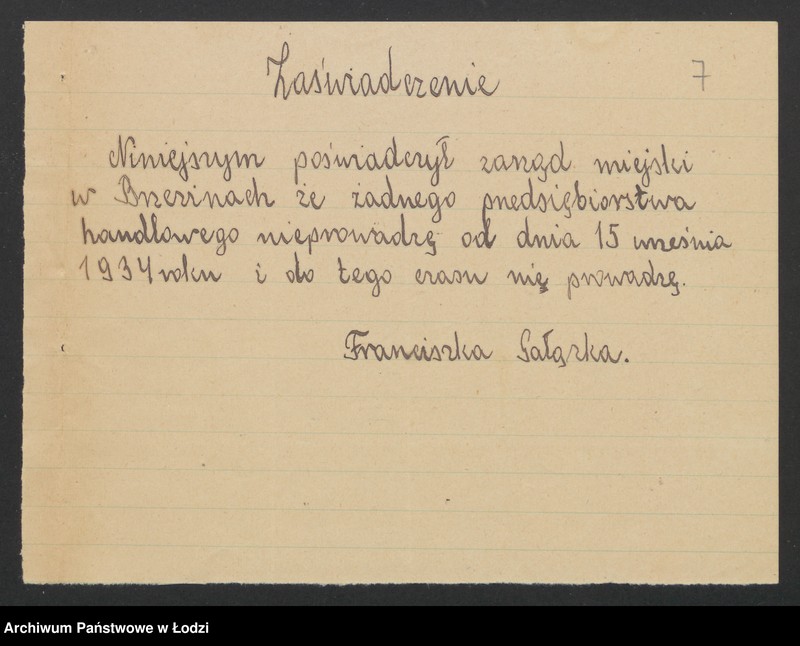 Zaświadczenie
7
Niniejszym poświadczył zarząd miejski
w Brzezinach że żadnego przedsiębiorstwa
handlowego nieprowadzę od dnia 15 września
1934 roku i do tego czasu nię prowadzę.
Franciszka Gałązka.
Archiwum Państwowe w Łodzi